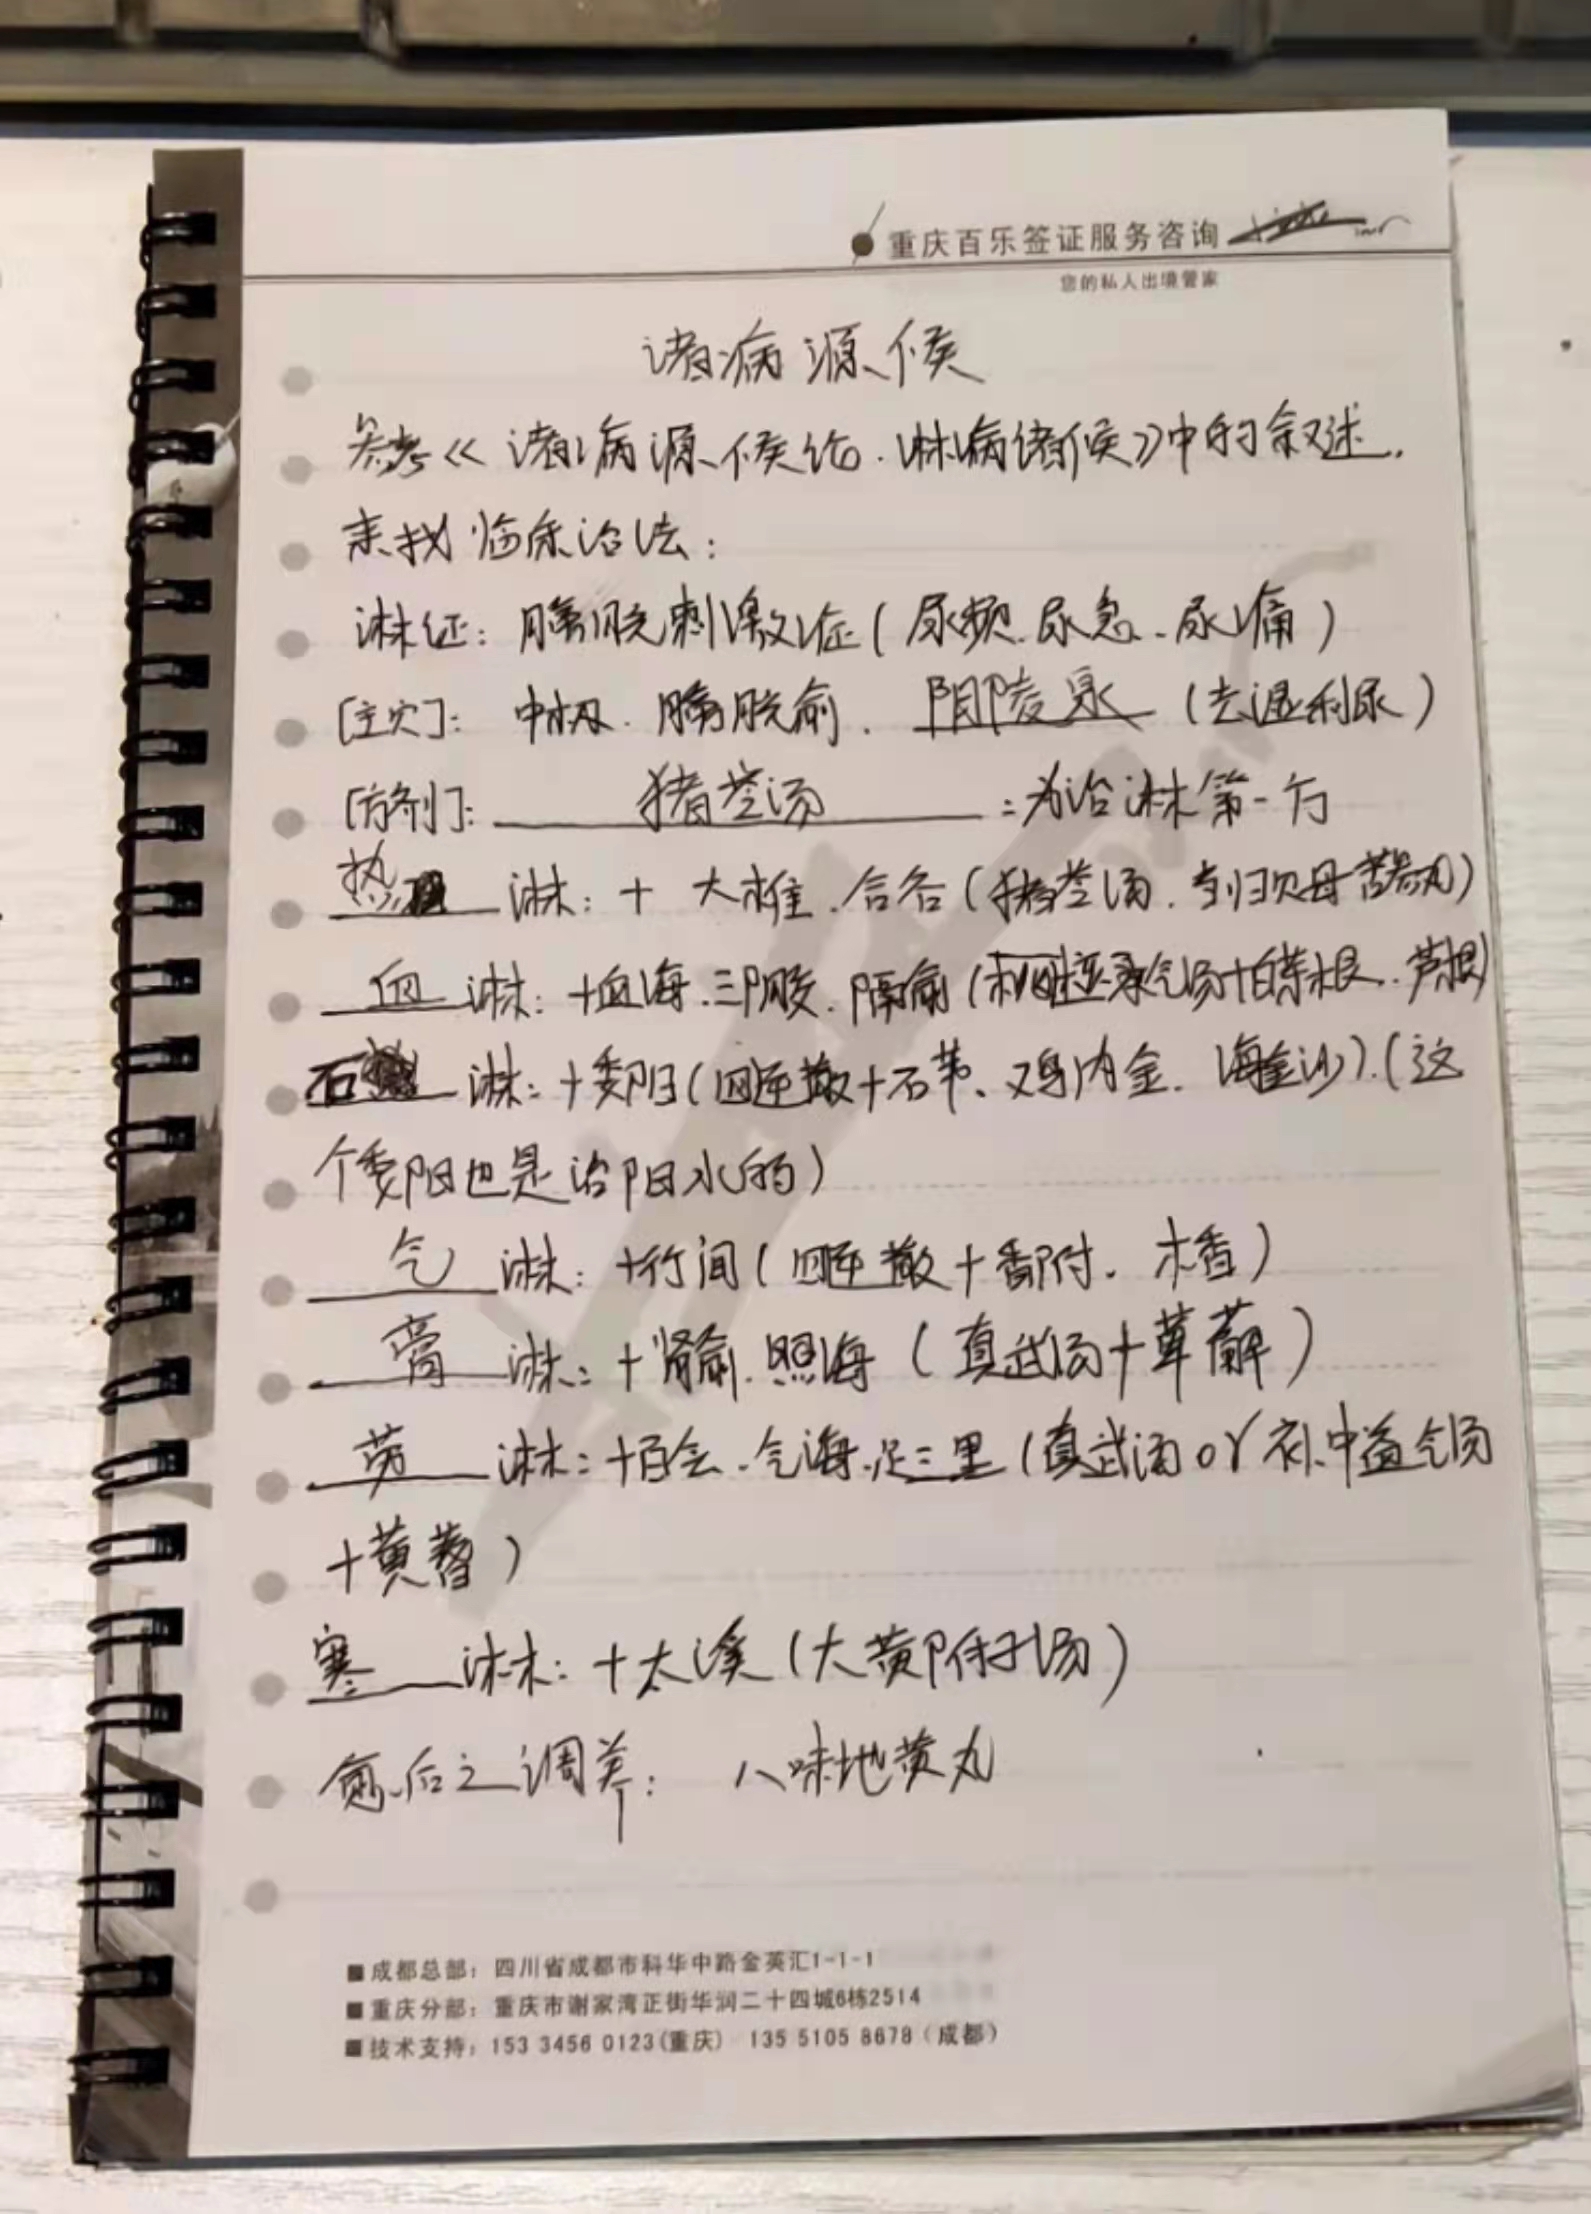 重庆百乐签证服务咨询
您的私人出境管家
诸病源候
参考《诸病源候论·淋病诸候》中的叙述,
来找临床治法:
淋证: 膀胱刺激症(尿频、尿急、尿痛)
[主穴]: 中极、膀胱俞、阴陵泉(去湿利尿)
[方剂]: 猪苓汤:为治淋第一方
热淋: + 大椎、合谷(猪苓汤、当归贝母苦参丸)
血淋: +血海、三阴交、膈俞(桃核承气汤+白茅根、芦根)
石淋: +委阳(四逆散+石苇、鸡内金、海金沙).(这
个委阳也是治阳水的)
气淋: +行间(四逆散+香附、木香)
膏淋: +肾俞、照海(真武汤+萆薢)
劳淋: +百会、气海、足三里(真武汤or补中益气汤
+黄蓍)
寒淋: +太溪(大黄附子汤)
愈后之调养: 八味地黄丸
■成都总部:四川省成都市科华中路金英汇1-1-1
■重庆分部:重庆市谢家湾正街华润二十四城6栋2514
■技术支持:153 3456 0123(重庆) 135 5105 8678(成都)